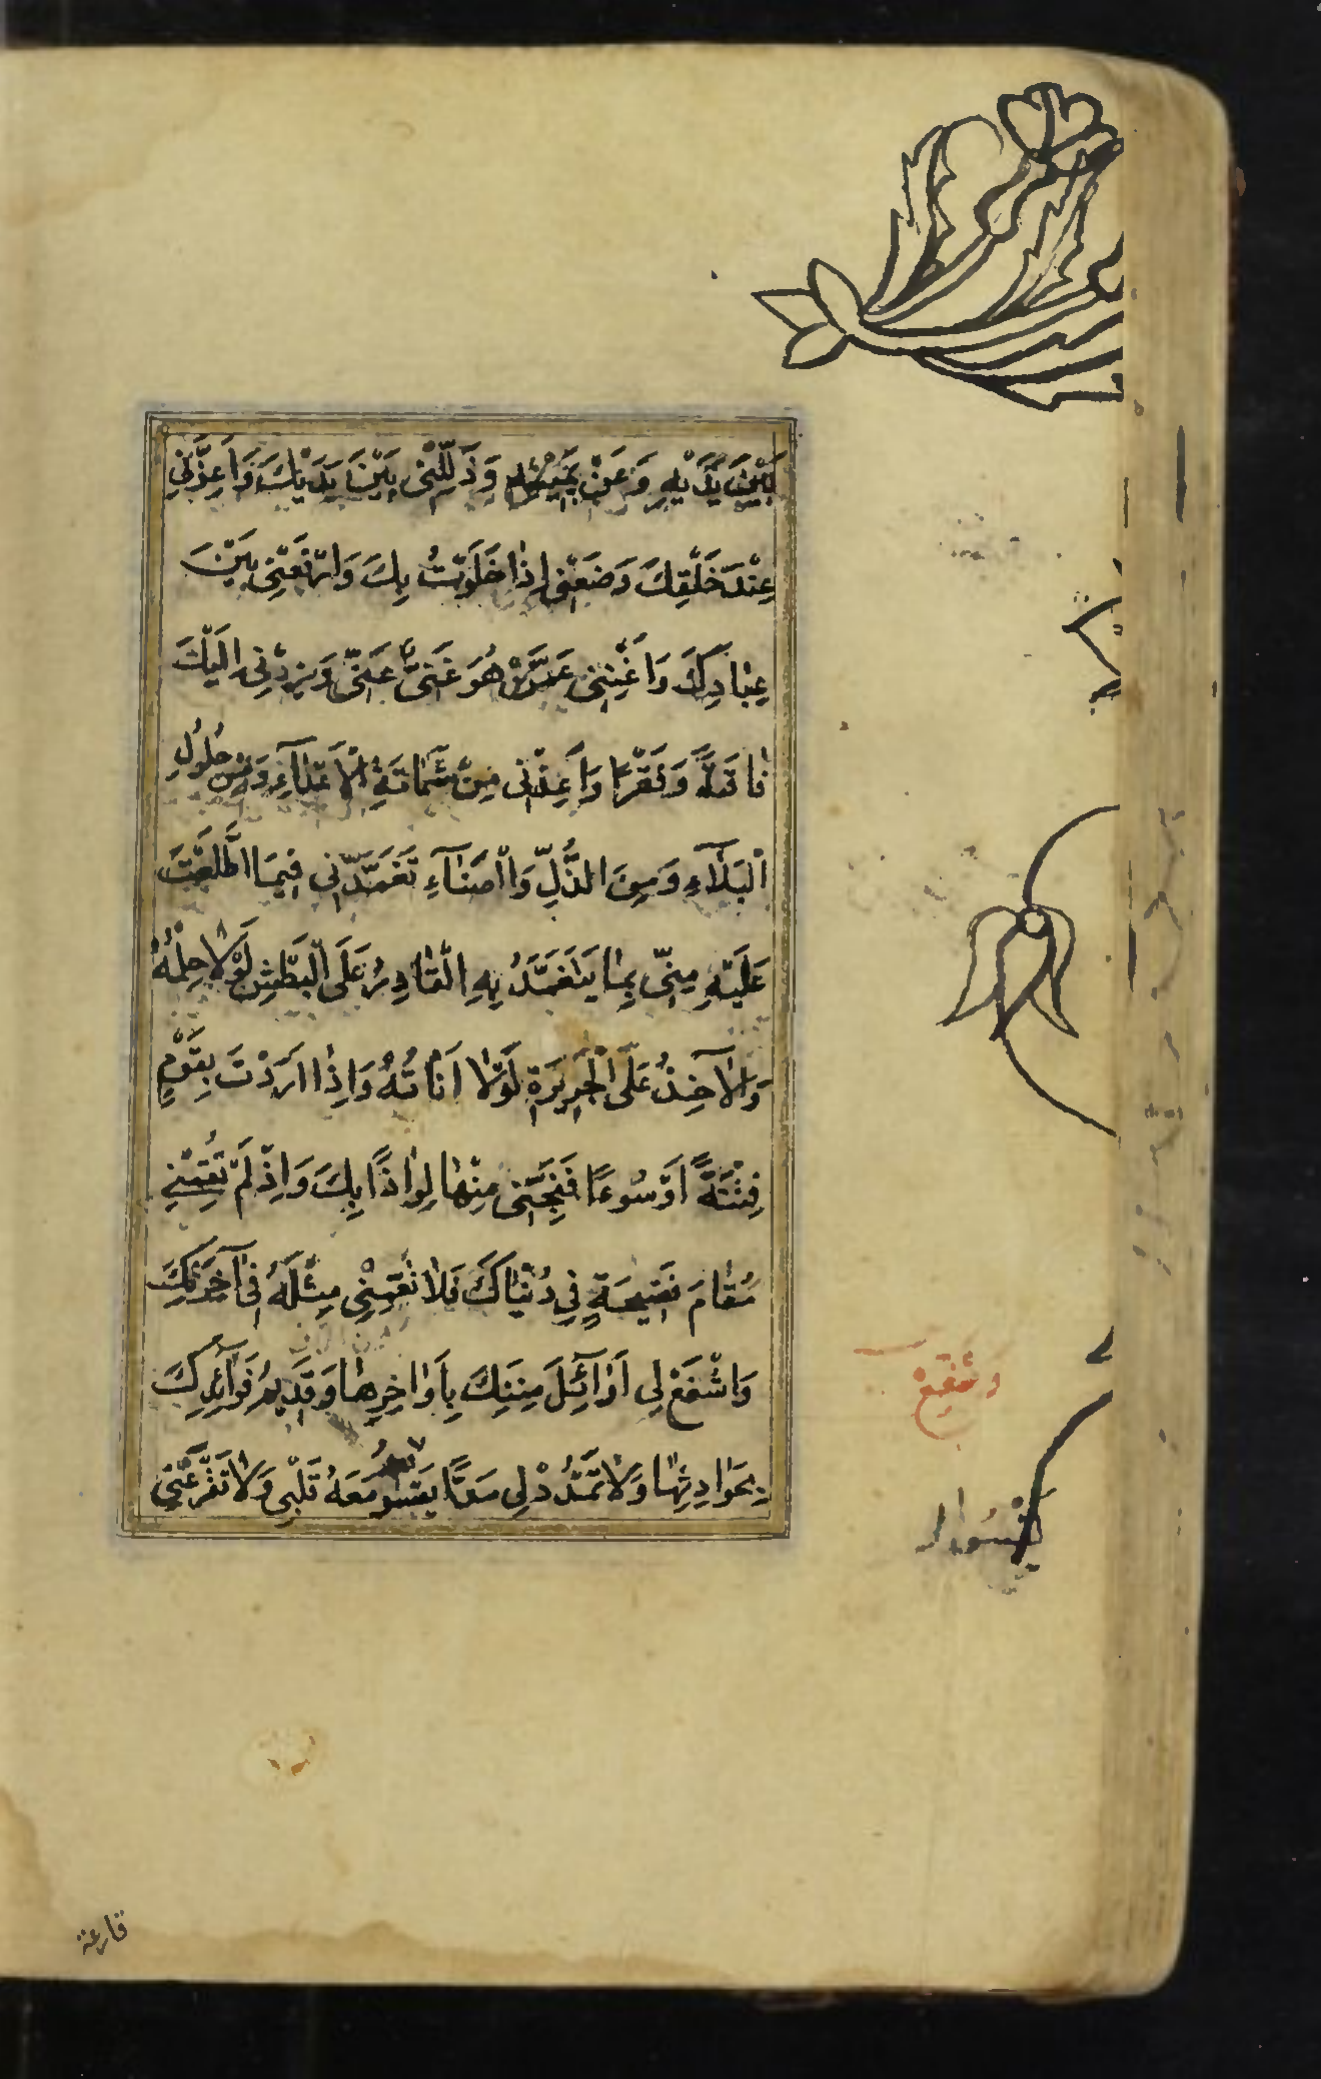 بَيْنَ يَدَيْهِ وَعَنْ يَمِينِهِ وَذَلِّلْنِي بَيْنَ يَدَيْكَ وَاَعِزَّنِي
عِنْدَ خَلْقِكَ وَضَعْنِي اِذَا خَلَوْتُ بِكَ وَارْفَعْنِي بَيْنَ
عِبَادِكَ وَاَغْنِنِي عَمَّنْ هُوَ غَنِيٌّ عَنِّي وَزِدْنِي اِلَيْكَ
فَاقَةً وَفَقْرًا وَاَعِذْنِي مِنْ شَمَاتَةِ الْاَعْدَاءِ وَمِنْ حُلُولِ
الْبَلَاءِ وَمِنَ الذُّلِّ وَالْعَنَاءِ تَغَمَّدْنِي فِيمَا اطَّلَعْتَ
عَلَيْهِ مِنِّي بِمَا يَتَغَمَّدُ بِهِ الْقَادِرُ عَلَى الْبَطْشِ لَوْلَا حِلْمُهُ
وَالْآخِذُ عَلَى الْجَرِيرَةِ لَوْلَا اَنَاتُهُ وَاِذَا اَرَدْتَ بِقَوْمٍ
فِتْنَةً اَوْ سُوءًا فَنَجِّنِي مِنْهَا لِوَاذًا بِكَ وَاِذْ لَمْ تُقِمْنِي
مَقَامَ فَضِيحَةٍ فِي دُنْيَاكَ فَلَا تُقِمْنِي مِثْلَهُ فِي آخِرَتِكَ
وَاشْفَعْ لِي اَوَائِلَ مِنَنِكَ بِاَوَاخِرِهَا وَقَدِيمَ فَوَائِدِكَ
بِحَوَادِثِهَا وَلَا تَمْدُدْ لِي مَدًّا يَقْسُو مَعَهُ قَلْبِي وَلَا تَقْرَعْنِي
قارعة